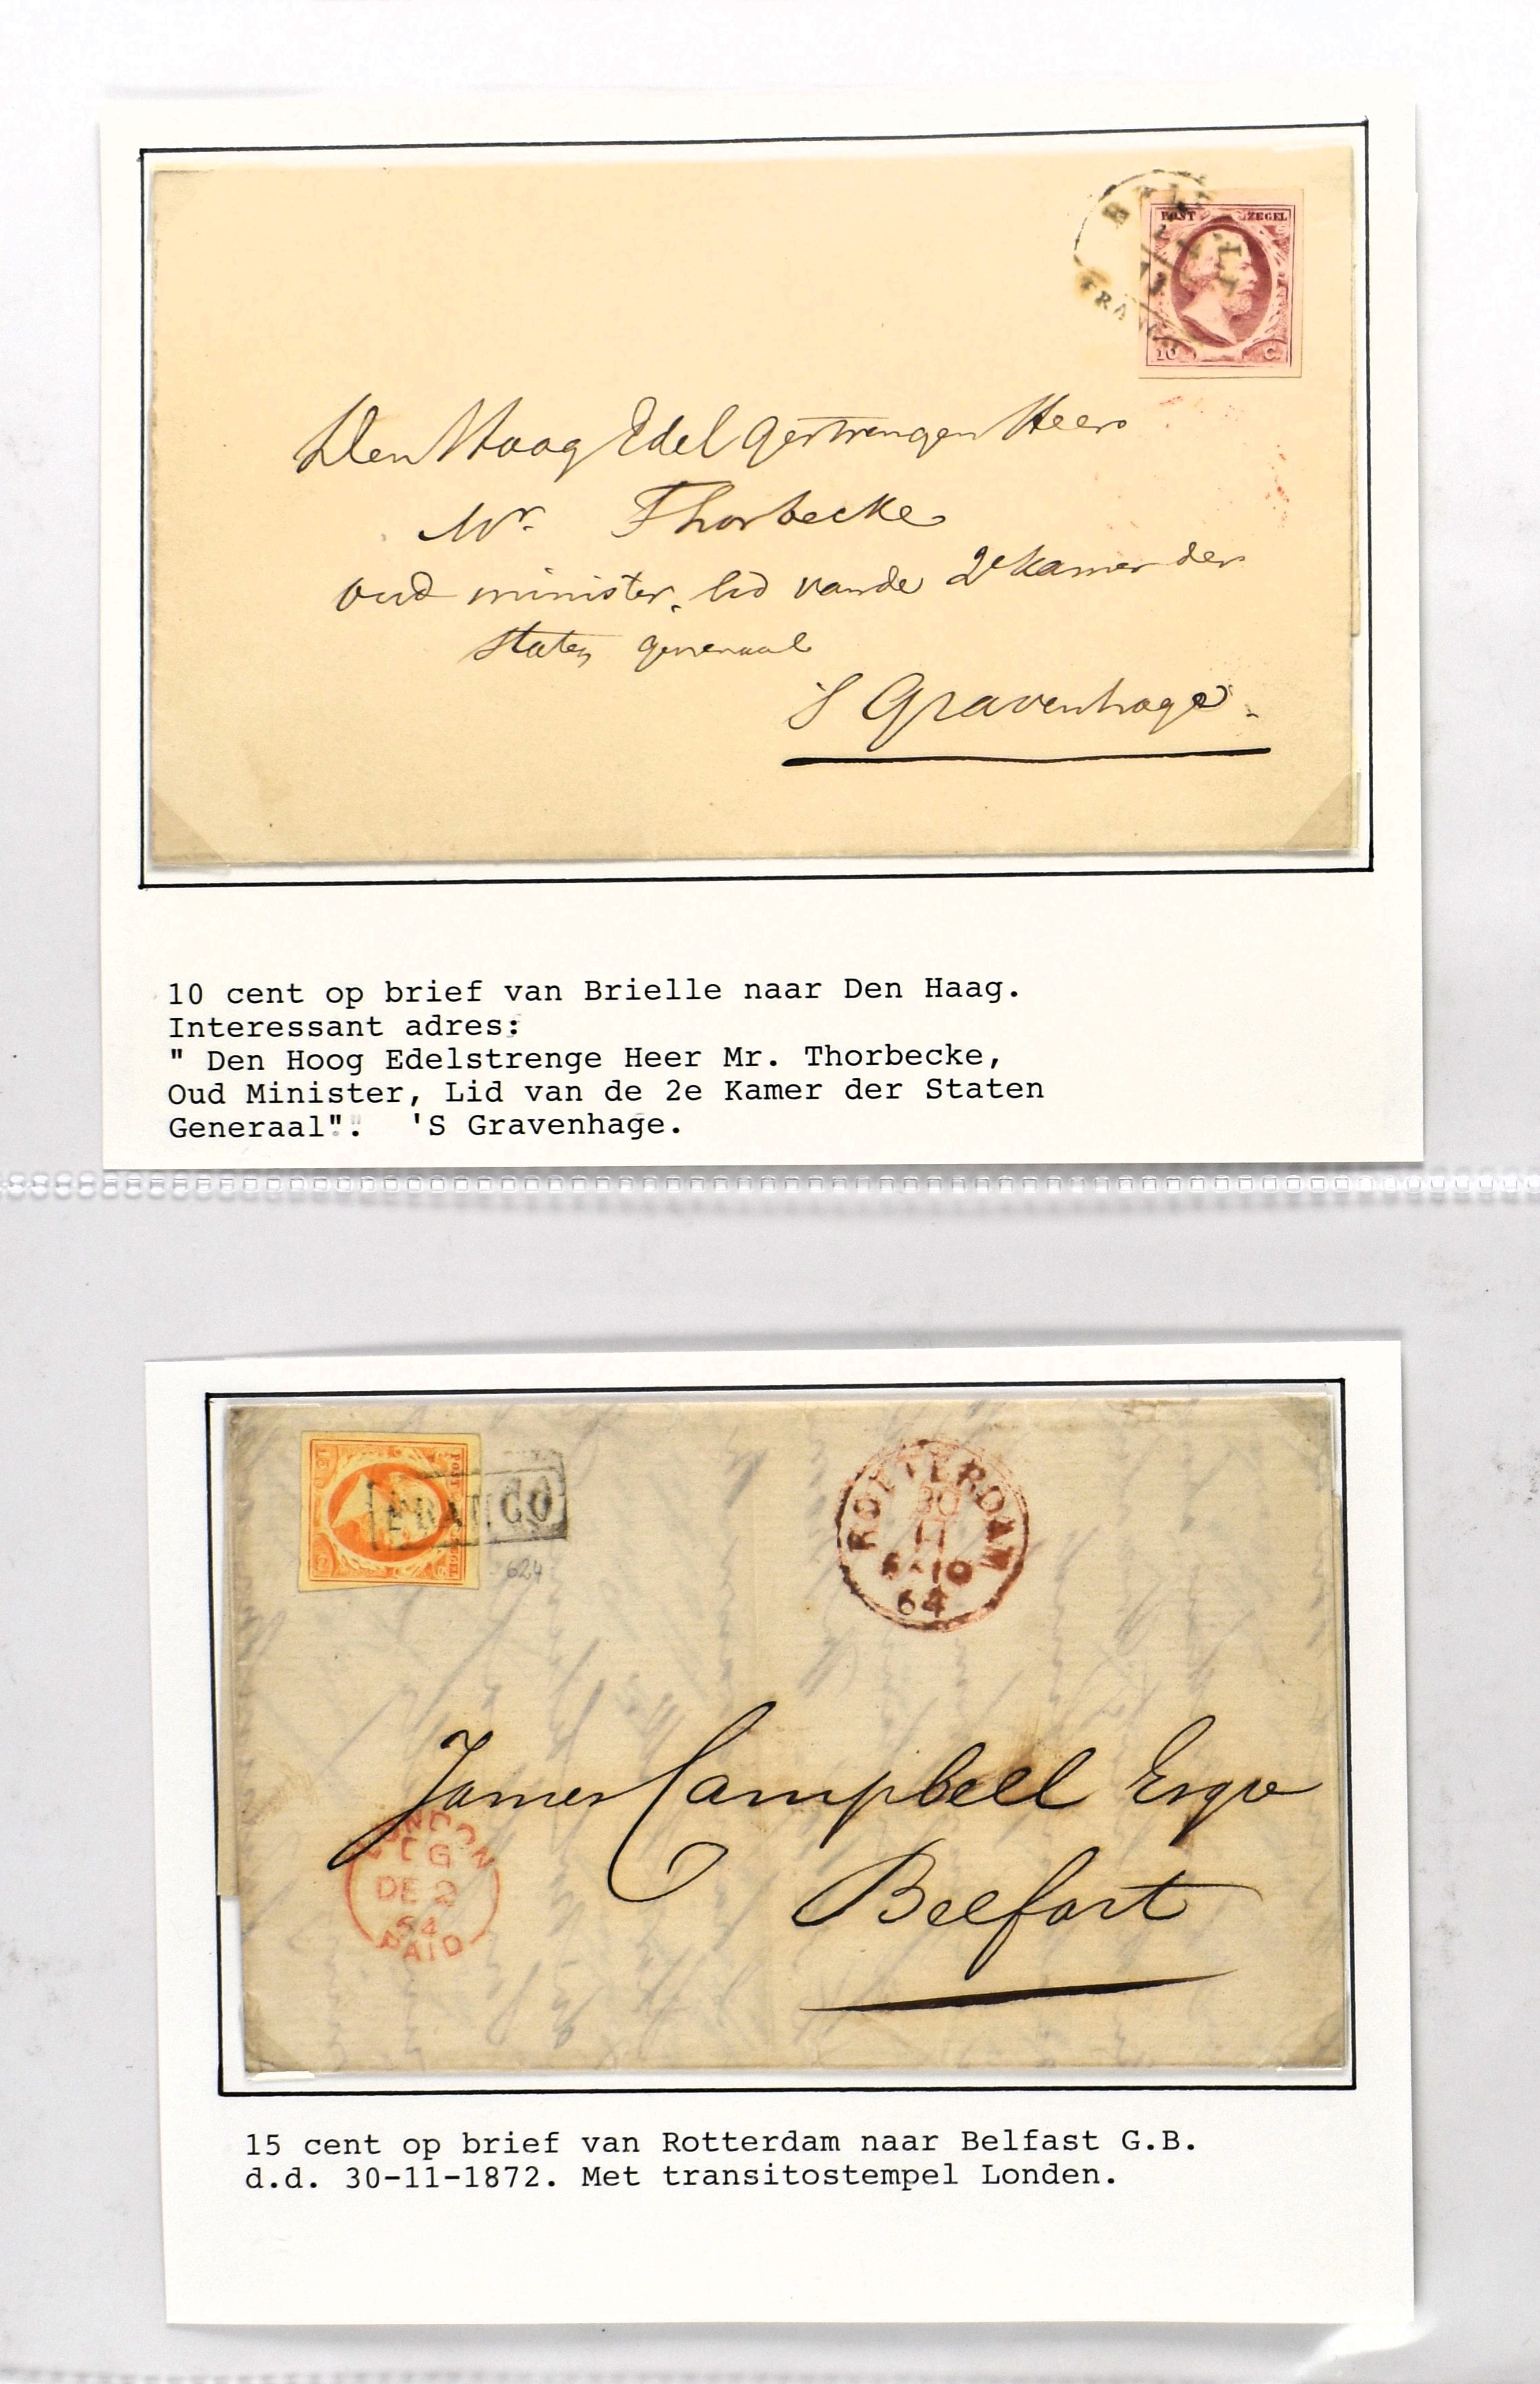 POST ZEGEL
10 C.
Den Hoog Edel Gestrengen Heer
Mr. Thorbecke
oud minister, lid van de 2e Kamer der
staten generaal
'S Gravenhage.
10 cent op brief van Brielle naar Den Haag.
Interessant adres:
" Den Hoog Edelstrenge Heer Mr. Thorbecke,
Oud Minister, Lid van de 2e Kamer der Staten
Generaal". 'S Gravenhage.
POST
FRANCO
624
ROTTERDAM
30
11
10
64
James Campbell Esqre
Belfast
LONDON
DE 2
64
PAID
15 cent op brief van Rotterdam naar Belfast G.B.
d.d. 30-11-1872. Met transitostempel Londen.